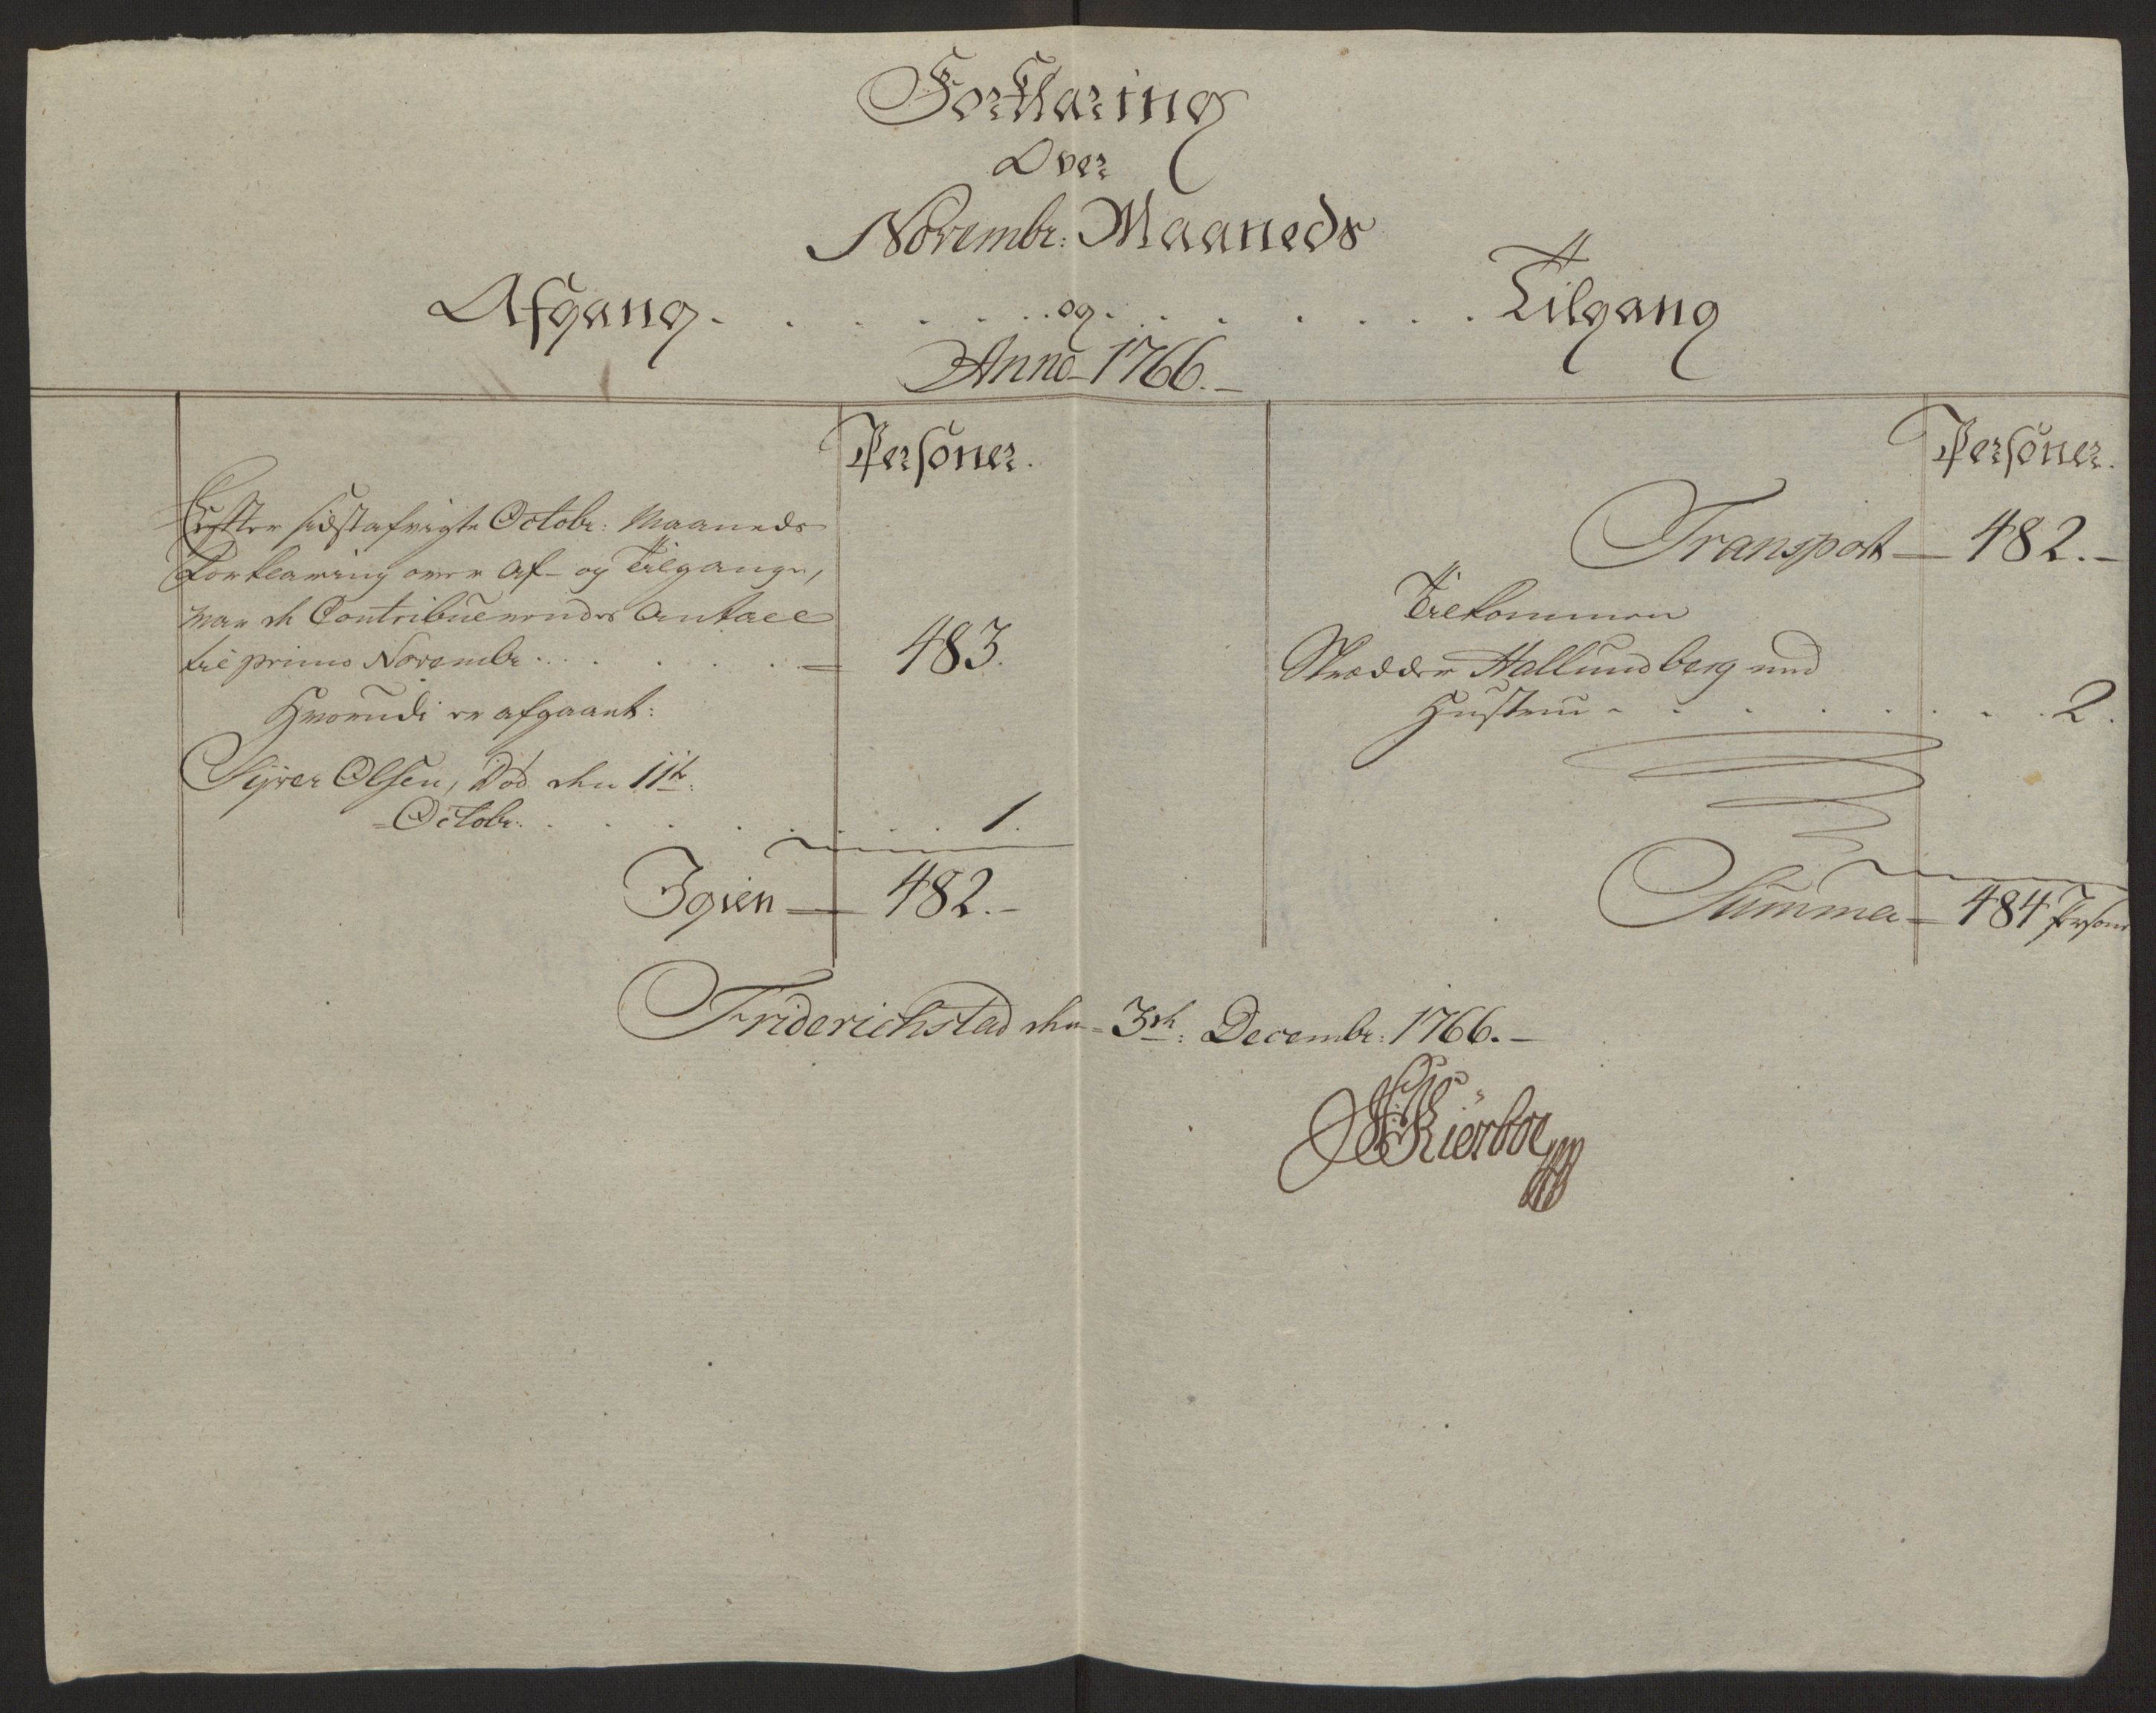 Forklaring
Over
Novembr: Maaneds
Afgang . . . . . . og . . . . . . Tilgang
Anno 1766.
Personer.
Effter sidstafvigte Octobr: Maaneds
Forklaring over Af- og Tilgangen,
var de Contribuerendes Antall
til primo Novembr. . . . . . . 483.
Hvorudi er afgaaet:
Syver Olsen, Död den 11te
Octobr. . . . . . . . 1.
Igien 482.-
Personer.
Transport 482.-
Tilkommen
Skrædder Hallundberg med
Hustrue . . . . . . . . 2.
Summa 484 Persone
Friderichstad den 3de: Decembr: 1766.-
Kierboe